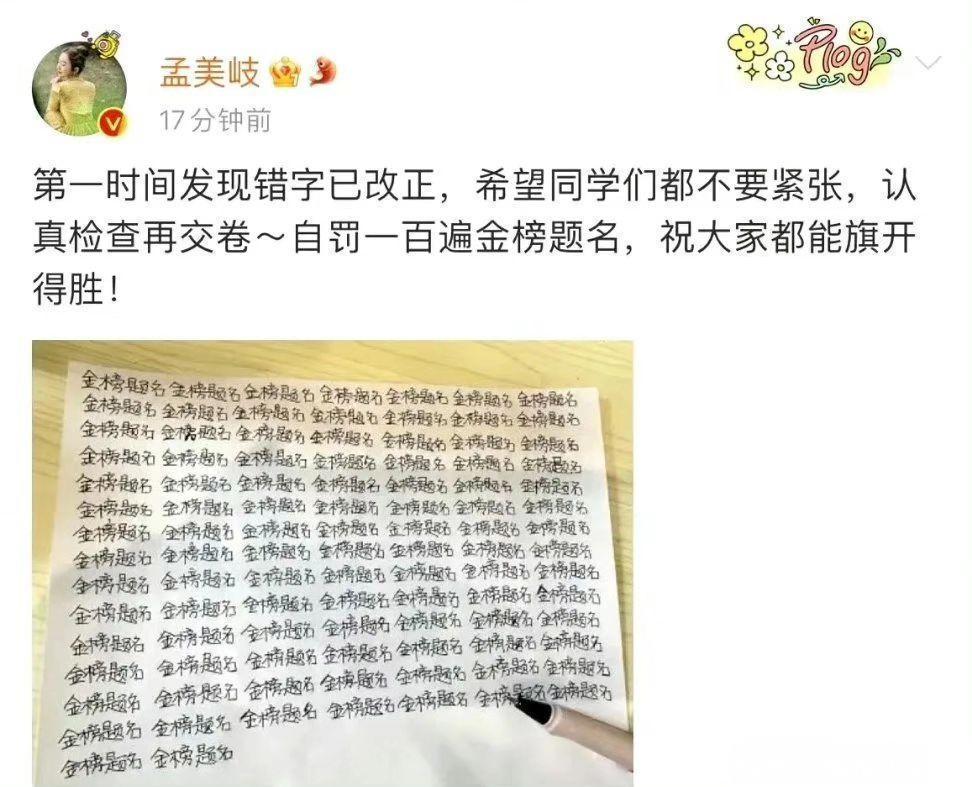 孟美岐
17分钟前
Plog
第一时间发现错字已改正，希望同学们都不要紧张，认
真检查再交卷～自罚一百遍金榜题名，祝大家都能旗开
得胜！
金榜题名 金榜题名 金榜题名 金榜题名 金榜题名 金榜题名 金榜题名
金榜题名 金榜题名 金榜题名 金榜题名 金榜题名 金榜题名 金榜题名
金榜题名 金榜题名 金榜题名 金榜题名 金榜题名 金榜题名 金榜题名
金榜题名 金榜题名 金榜题名 金榜题名 金榜题名 金榜题名 金榜题名
金榜题名 金榜题名 金榜题名 金榜题名 金榜题名 金榜题名 金榜题名
金榜题名 金榜题名 金榜题名 金榜题名 金榜题名 金榜题名 金榜题名
金榜题名 金榜题名 金榜题名 金榜题名 金榜题名 金榜题名 金榜题名
金榜题名 金榜题名 金榜题名 金榜题名 金榜题名 金榜题名 金榜题名
金榜题名 金榜题名 金榜题名 金榜题名 金榜题名 金榜题名 金榜题名
金榜题名 金榜题名 金榜题名 金榜题名 金榜题名 金榜题名 金榜题名
金榜题名 金榜题名 金榜题名 金榜题名 金榜题名 金榜题名 金榜题名
金榜题名 金榜题名 金榜题名 金榜题名 金榜题名 金榜题名 金榜题名
金榜题名 金榜题名 金榜题名 金榜题名 金榜题名 金榜题名 金榜题名
金榜题名 金榜题名 金榜题名 金榜题名 金榜题名 金榜题名 金榜题名
金榜题名 金榜题名